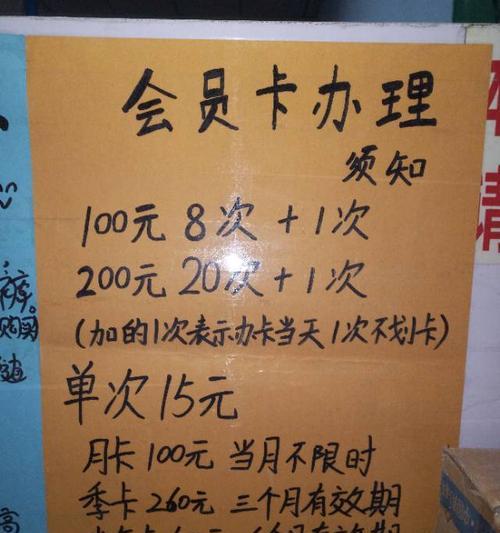 会员卡办理
须知
100元 8次 +1次
200元 20次+1次
(加的1次表示办卡当天1次不划卡)
单次15元
月卡 100元 当月不限时
季卡 260元 三个月有效期
裤。
购买